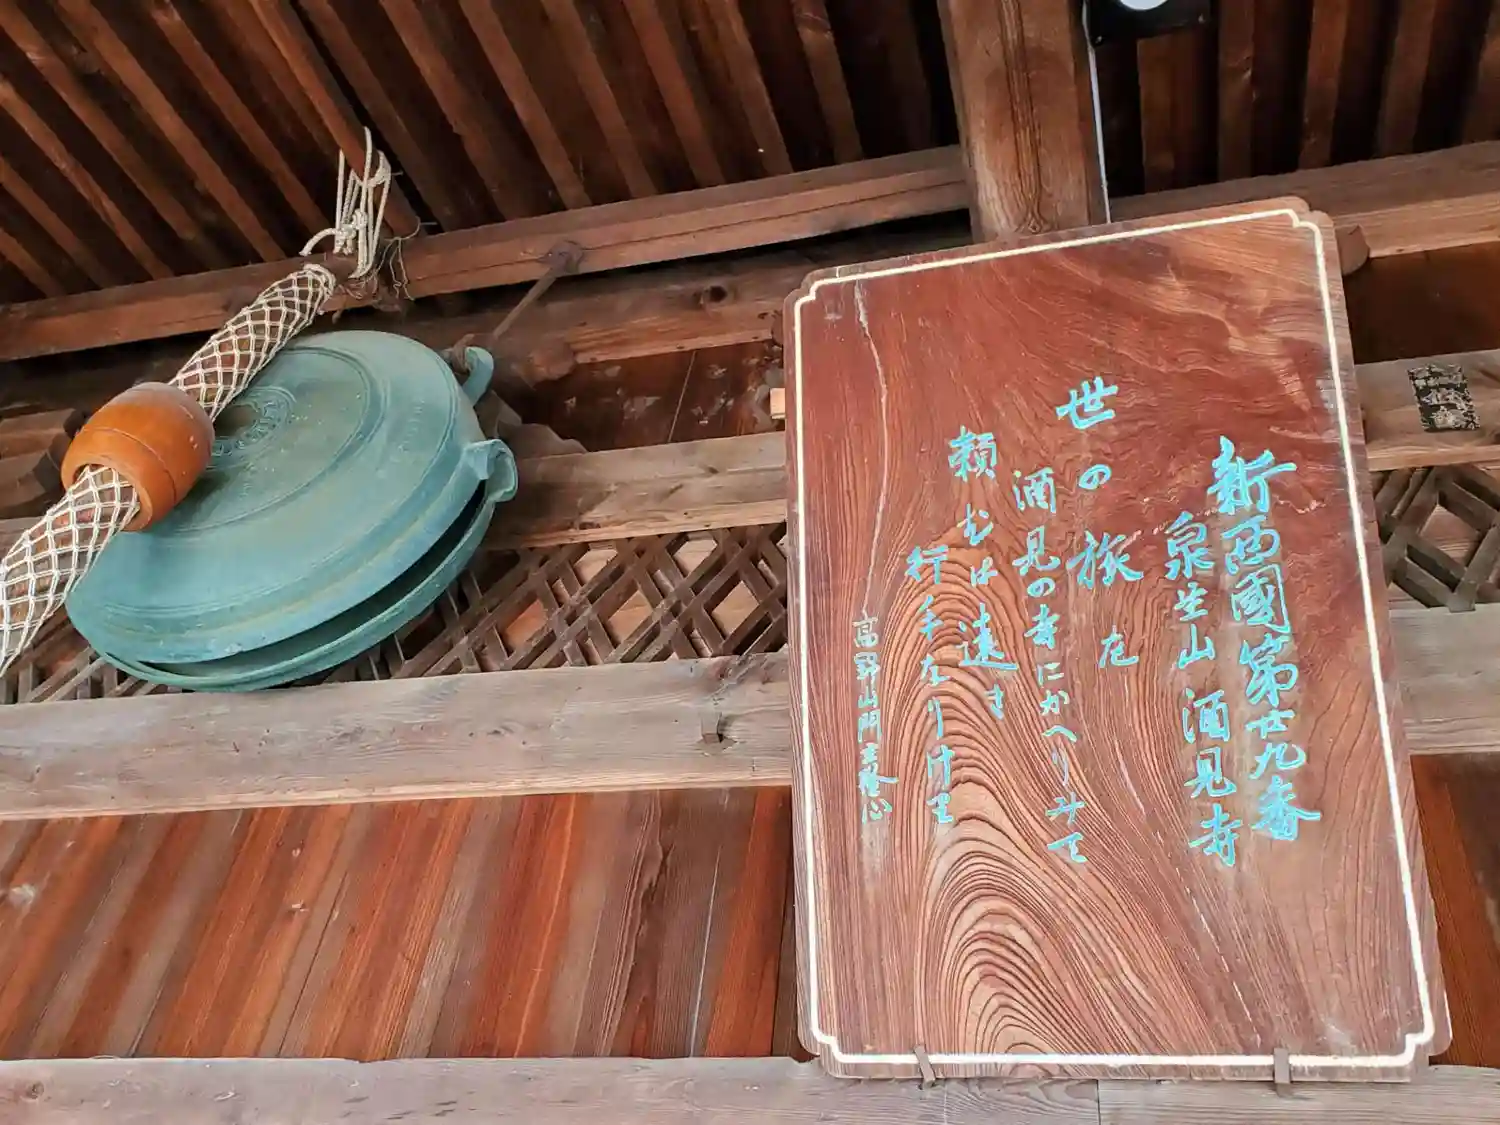 新西國第廿九番
泉生山 酒見寺
世の旅を
酒見の寺にかへりみて
頼むは遠き
行手なりけり
高野山門主隆心